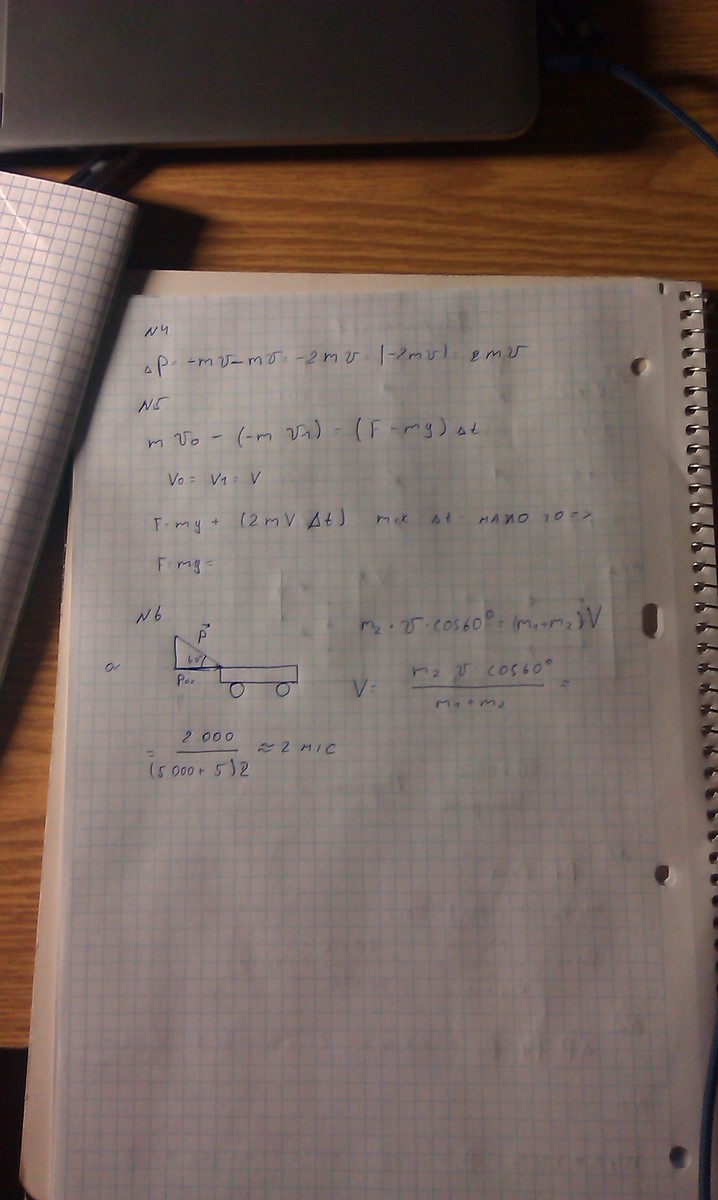 N4
ΔP = -mv - mv = -2mv = |-2mv| = 2mv
N5
m v₀ - (-m v₁) = (F - mg) Δt
V₀ = V₁ = V
F = mg + (2mV Δt) т.к Δt мало то =>
F = mg =
N6
P⃗
60°
Pox
m₂ · v · cos60° = (m₁+m₂)V
V = m₂ v cos60° / m₁+m₂ =
= 2 000 / (5 000 + 5)2 ≈ 2 м/с